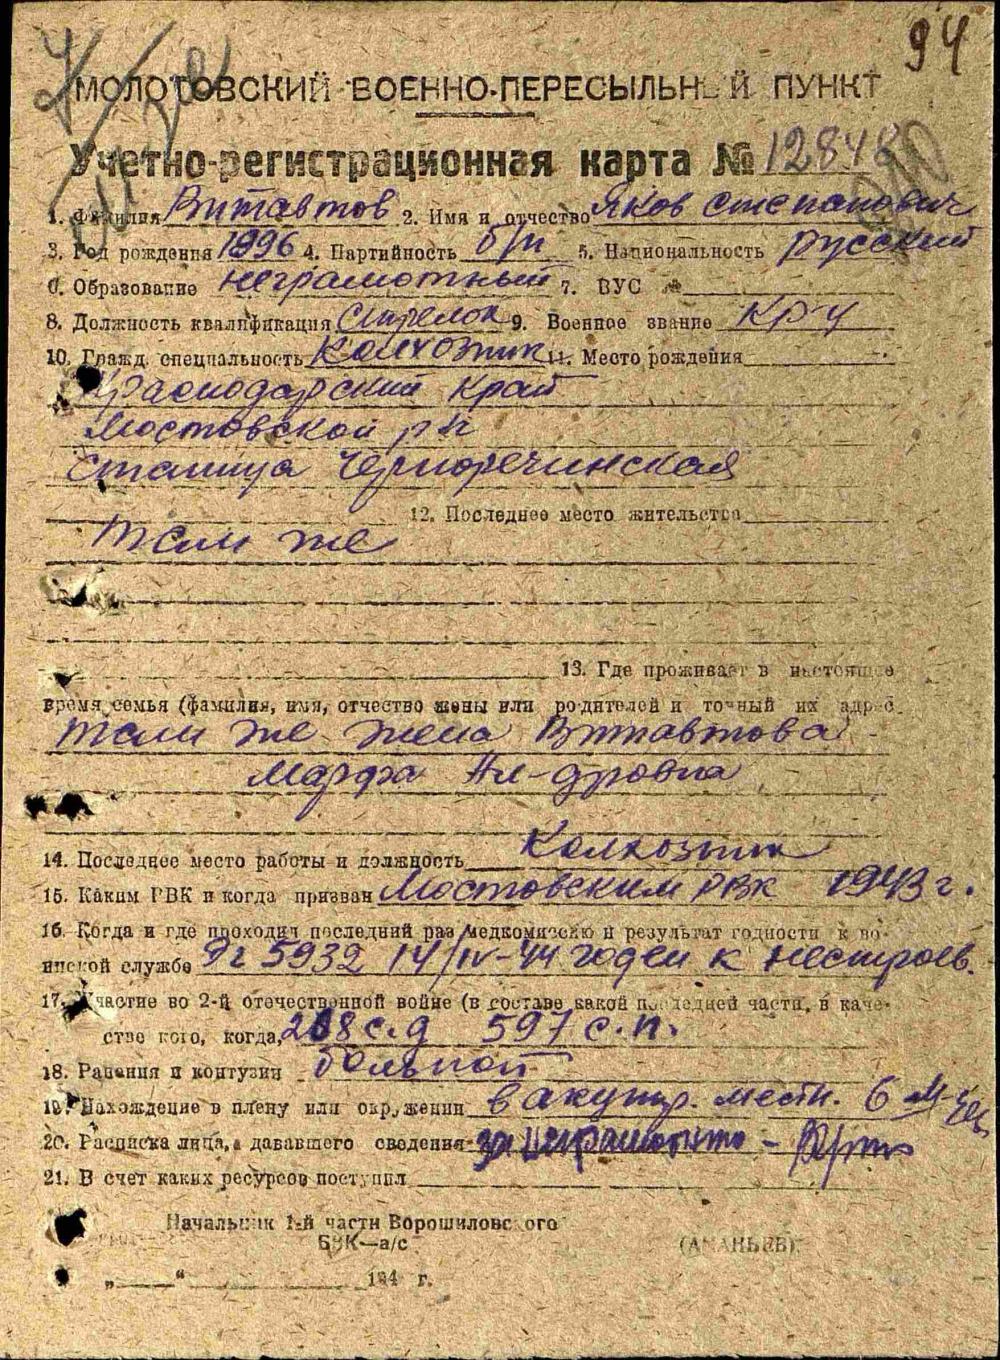 94
МОЛОТОВСКИЙ ВОЕННО-ПЕРЕСЫЛЬНЫЙ ПУНКТ
Учетно-регистрационная карта № 12848
1. Фамилия Витавтов 2. Имя и отчество Яков Степанович
3. Год рождения 1896 4. Партийность б/п 5. Национальность русский
6. Образование неграмотный 7. ВУС
8. Должность квалификация Стрелок 9. Военное звание кр-ц
10. Гражд. специальность Колхозник 11. Место рождения
Краснодарский край
Мостовской р-н
станица Черноречинская
12. Последнее место жительства
там же
13. Где проживает в настоящее
время семья (фамилия, имя, отчество жены или родителей и точный их адрес
там же жена Витавтова
Марфа Ал-дровна
14. Последнее место работы и должность Колхозник
15. Каким РВК и когда призван Мостовским РВК 1943 г.
16. Когда и где проходил последний раз медкомиссию и результат годности к во-
инской службе Эг 5932 14/IV-44 годен к нестроев.
17. Участие во 2-й отечественной войне (в составе какой последней части, в каче-
стве кого, когда, с.д 597 с.п.
18. Ранения и контузии больной
19. Нахождение в плену или окружении в акупир. местн. 6 м-цев
20. Расписка лица, дававшего сведения за неграмотно -
21. В счет каких ресурсов поступил
Начальник 1-й части Ворошиловского
БВК—а/с (АНАНЬЕВ).
„ “ 194 г.